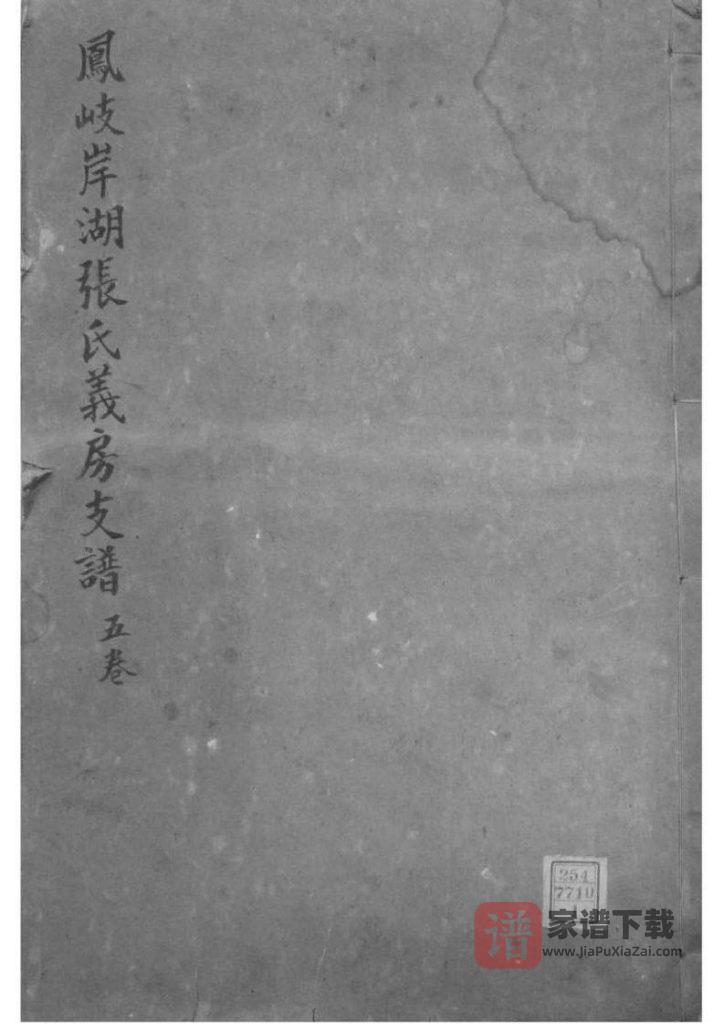 鳳岐岸湖張氏義房支譜
五卷
254
7710
1
谱 家谱下载
www.JiaPuXiaZai.com